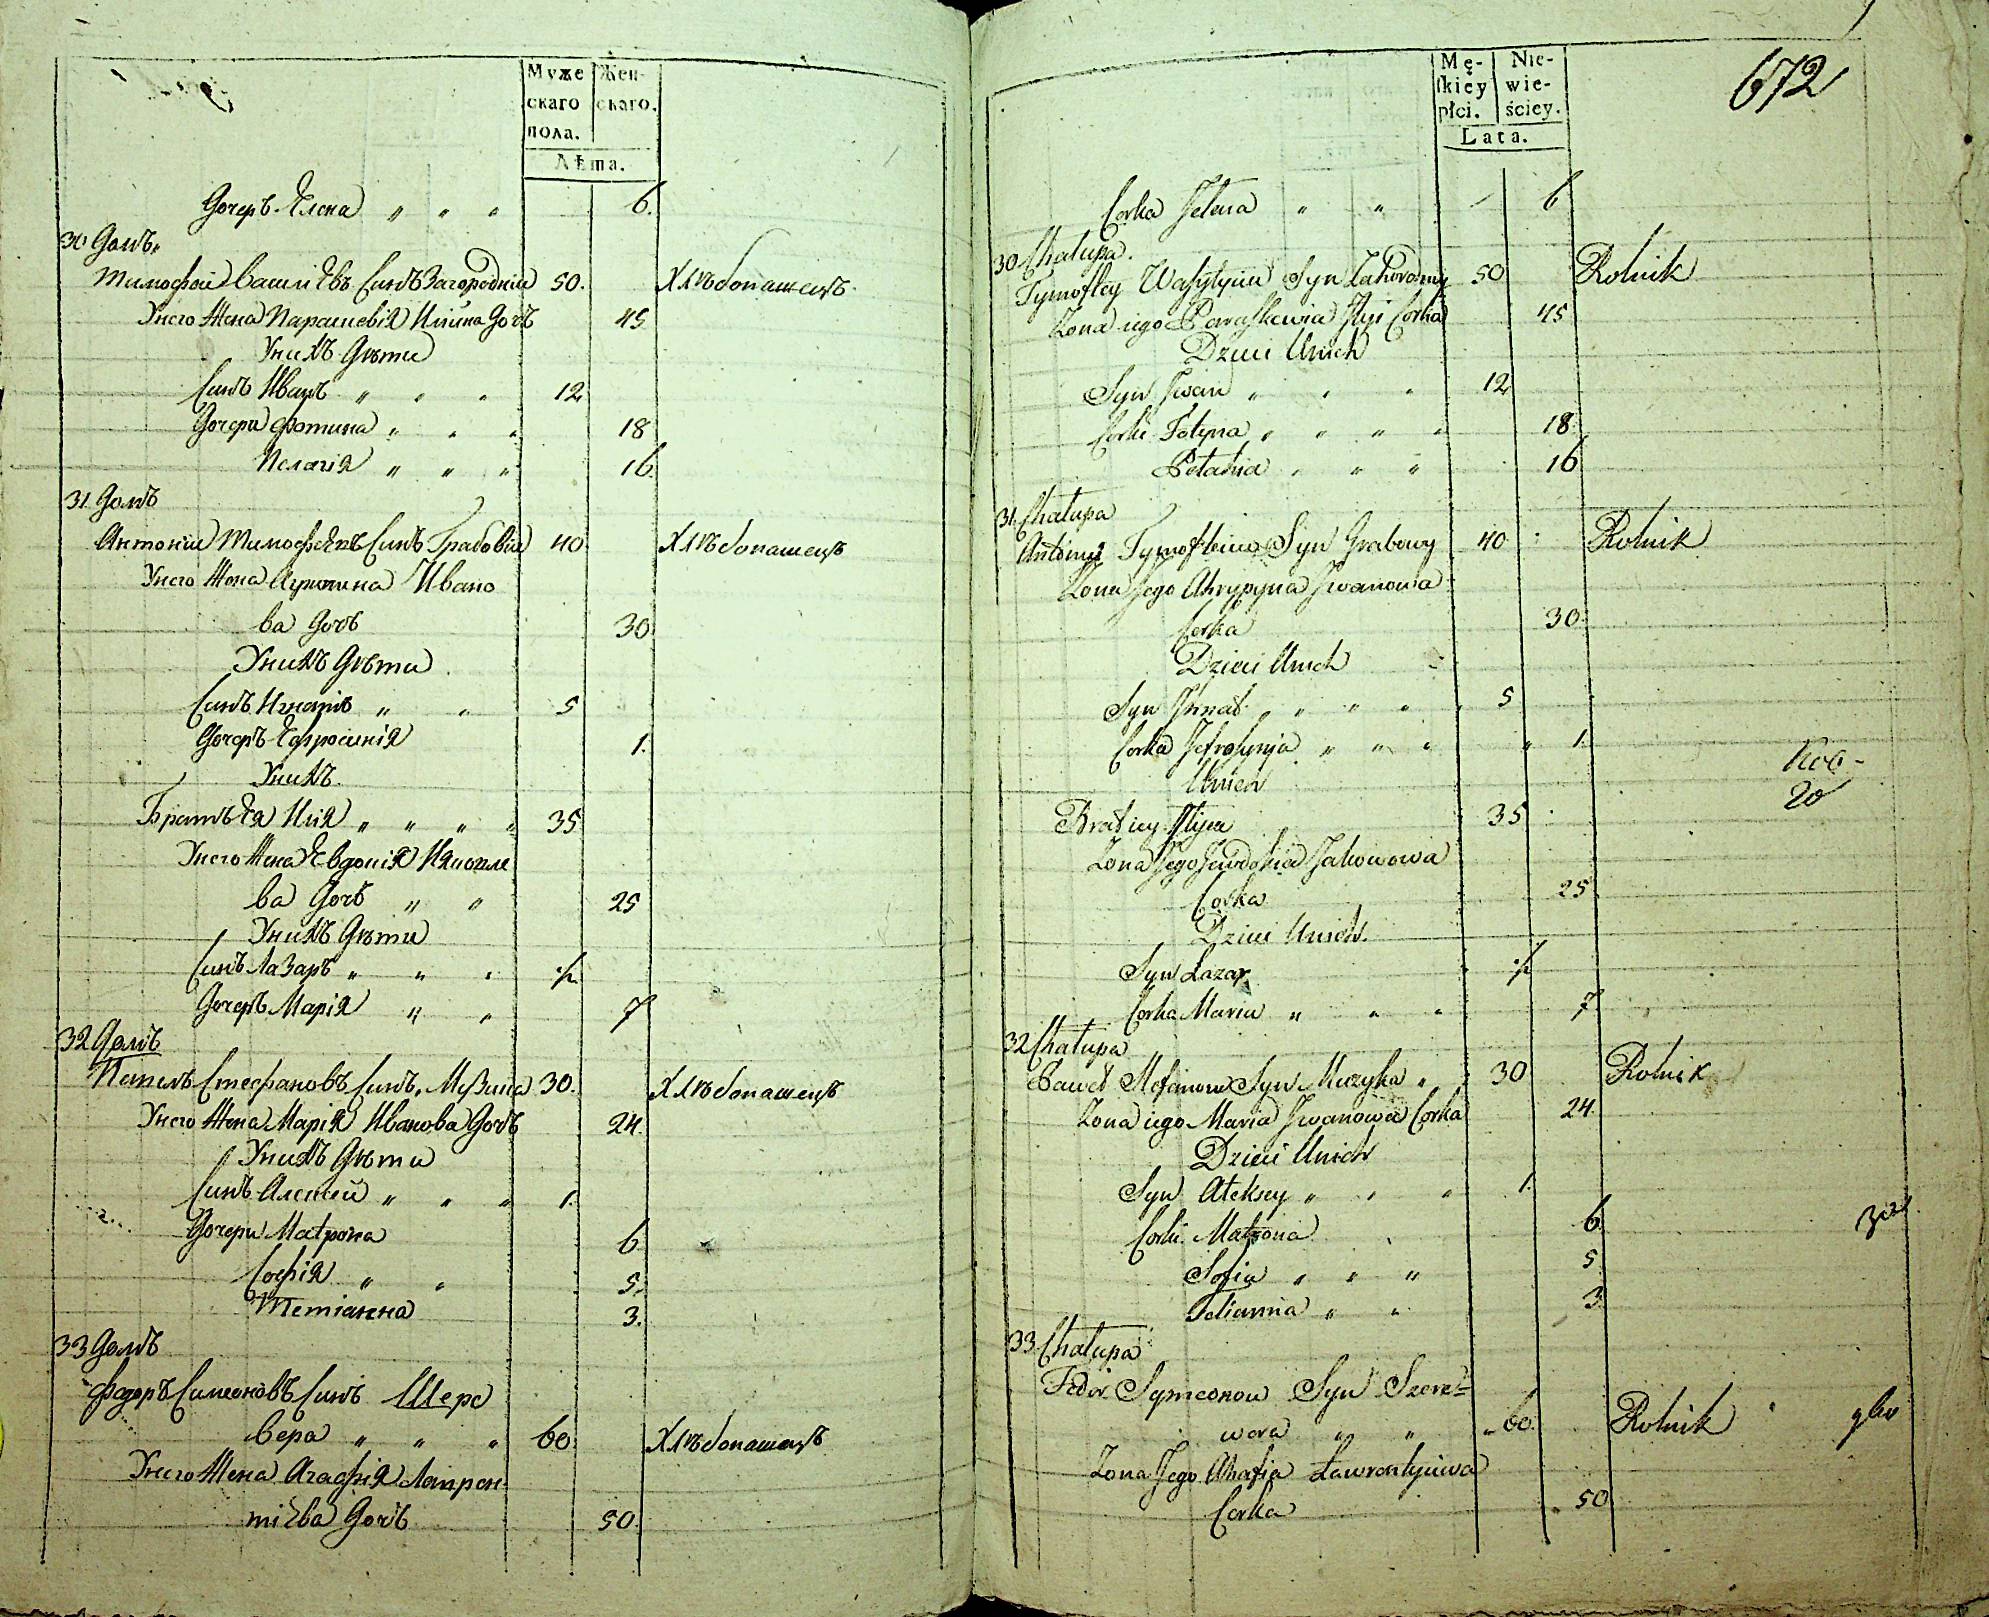 Муже
скаго
пола.
Жен-
скаго.
Лѣта.
Дочерь Елена " " " 6.
30 Домъ.
Тимофей Василѣвъ Синъ Загородній 50. Хлѣбопашецъ
Унего Жена Парашевія Ильина Дочь 45.
Унихъ Дѣти
Синъ Иванъ " " " 12
Дочери Фотина " " " 18
Пелагія " " " 16.
31 Домъ
Антоній Тимофѣевъ Синъ Грабовій 40 Хлѣбопашецъ
Унего Жена Агрипина Ивано
ва Дочь 30.
Унихъ Дѣти
Синъ Игнатъ " " 5
Дочерь Ефросинія 1.
Унихъ.
Братъ Ея Илія " " " " 35
Унего Жена Евдокія
ва Дочь " " 25
Унихъ Дѣти
Синъ Лазаръ " " " ½
Дочерь Марія " " 7
32 Домъ
Павелъ Стефановъ Синъ Музика 30. Хлѣбопашецъ
Унего Жена Марія Иванова Дочь 24.
Унихъ Дѣти
Синъ Алексей " " " 1.
Дочери Матрона 6
Софія " " 5.
Тетіанна 3.
33 Домъ
Федоръ Симеоновъ Синъ Шере
вера " " " 60. Хлѣбопашецъ
Унего Жена Агафія Лаврен
тіева Дочь 50
672
Mę-
skiey
płci.
Nie-
wie-
ściey.
Lata.
Corka Jelena " " 6
30 Chałupa.
Tymofiey Wasylyiw Syn Zahorodny 50 Rolnik
Zona iego Paraskewia Ilyi Corka 45
Dzieci Unich
Syn Iwan " " " 12
Corki Fotyna " " " " 18.
Pełahia " " " 16
31 Chałupa
Antoniy Tymofteiow Syn Grabowy 40 Rolnik
Zona Jego Ahrypyna Iwanowa
Corka 30.
Dzieci Unich
Syn Ihnat " " " " 5
Corka Jefrosynja " " " 1.
Unich
Brat iey Ilyia 35
Zona Jego Jewdokia Jakowowa
Corka 25
Dzieci Unich.
Syn Łazar ½
Corka Maria " " " 7
32 Chałupa
Paweł Stefanow Syn Muzyka " 30 Rolnik
Zona iego Maria Iwanowa Corka 24.
Dzieci Unich
Syn Ałeksey " " " 1.
Corki Matrona 6.
Sofia " " " 5
Tetianna " " 3.
33 Chałupa
Fedor Symeonow Syn Szere=
wera " " " 60. Rolnik
Zona Jego Ahafia Ławrentyiwa
Corka 50